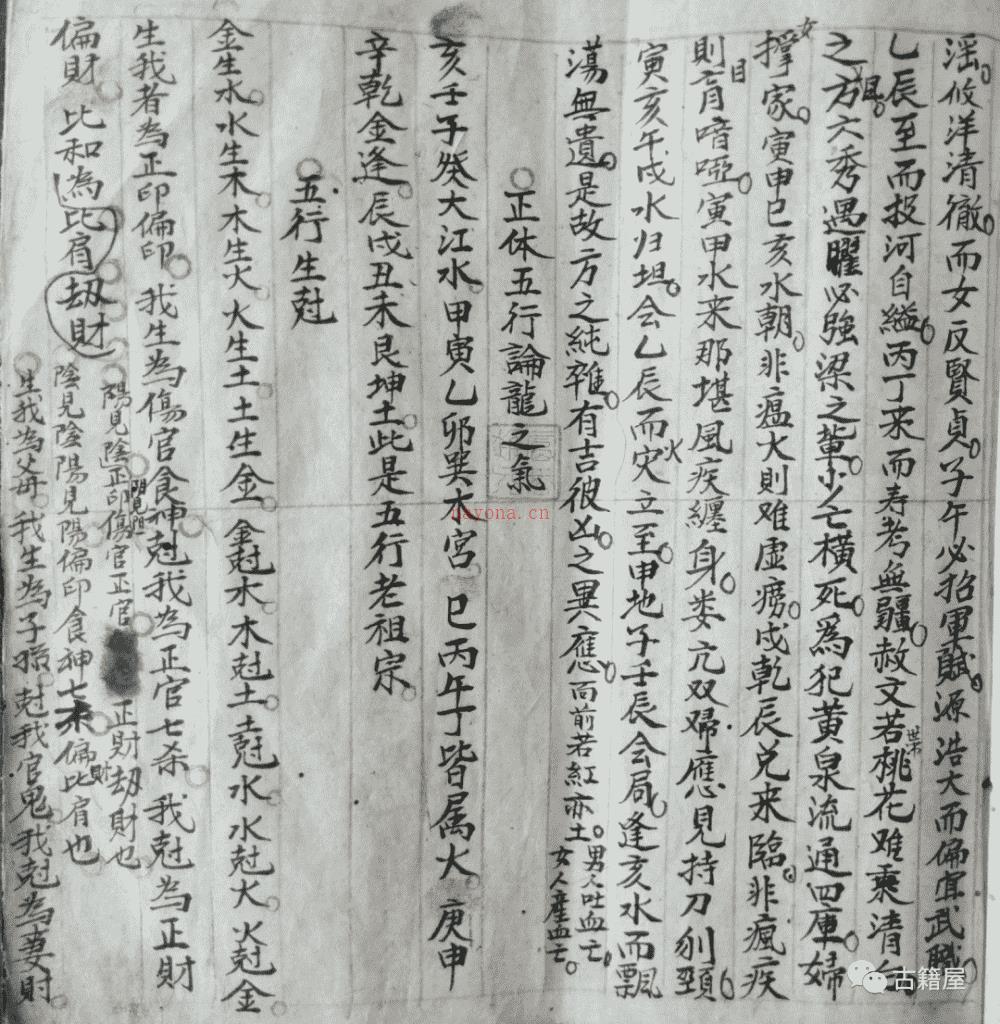 淫。攸洋清徹。而女反賢貞。子午必招軍賊。源浩大而偏宜武職。
乙辰至而投河自縊。丙丁来而寿考無疆。赦文若桃花难乘清白
之方六秀遇曜必強梁之輩。少亡橫死。為犯黃泉流通四庫。婦
女撑家。寅申巳亥水朝。非瘟火則难虚痨。戌乾辰兌来臨。非瘋疾
則盲喑啞。寅甲水来那堪風疾纏身。娄亢双歸應見持刀刎頸。
寅亥午戌水归坦。会乙辰而火灾立至。申地子壬辰会局。逢亥水而飄
蕩無遺。是故方之純雜。有吉彼凶之異應。面前若紅亦土。男人吐血亡。
女人產血亡。
正休五行論龍之氣
亥壬子癸大江水。甲寅乙卯巽木宮。巳丙午丁皆属火。庚申
辛乾金逢。辰戌丑未艮坤土。此是五行老祖宗。
五行生尅
金生水。水生木。木生火。火生土。土生金。金尅木。木尅土。土尅水。水尅火。火尅金
生我者為正印偏印。我生為傷官食神。尅我為正官七杀。我尅為正財
偏財。比和為比肩劫財
陽見陰正印傷官正官正財劫財也
陰見陰陽見陽偏印食神七杀偏財比肩也
生我為父母。我生為子孫。尅我官鬼。我尅為妻財。
bayona.cn
古籍屋